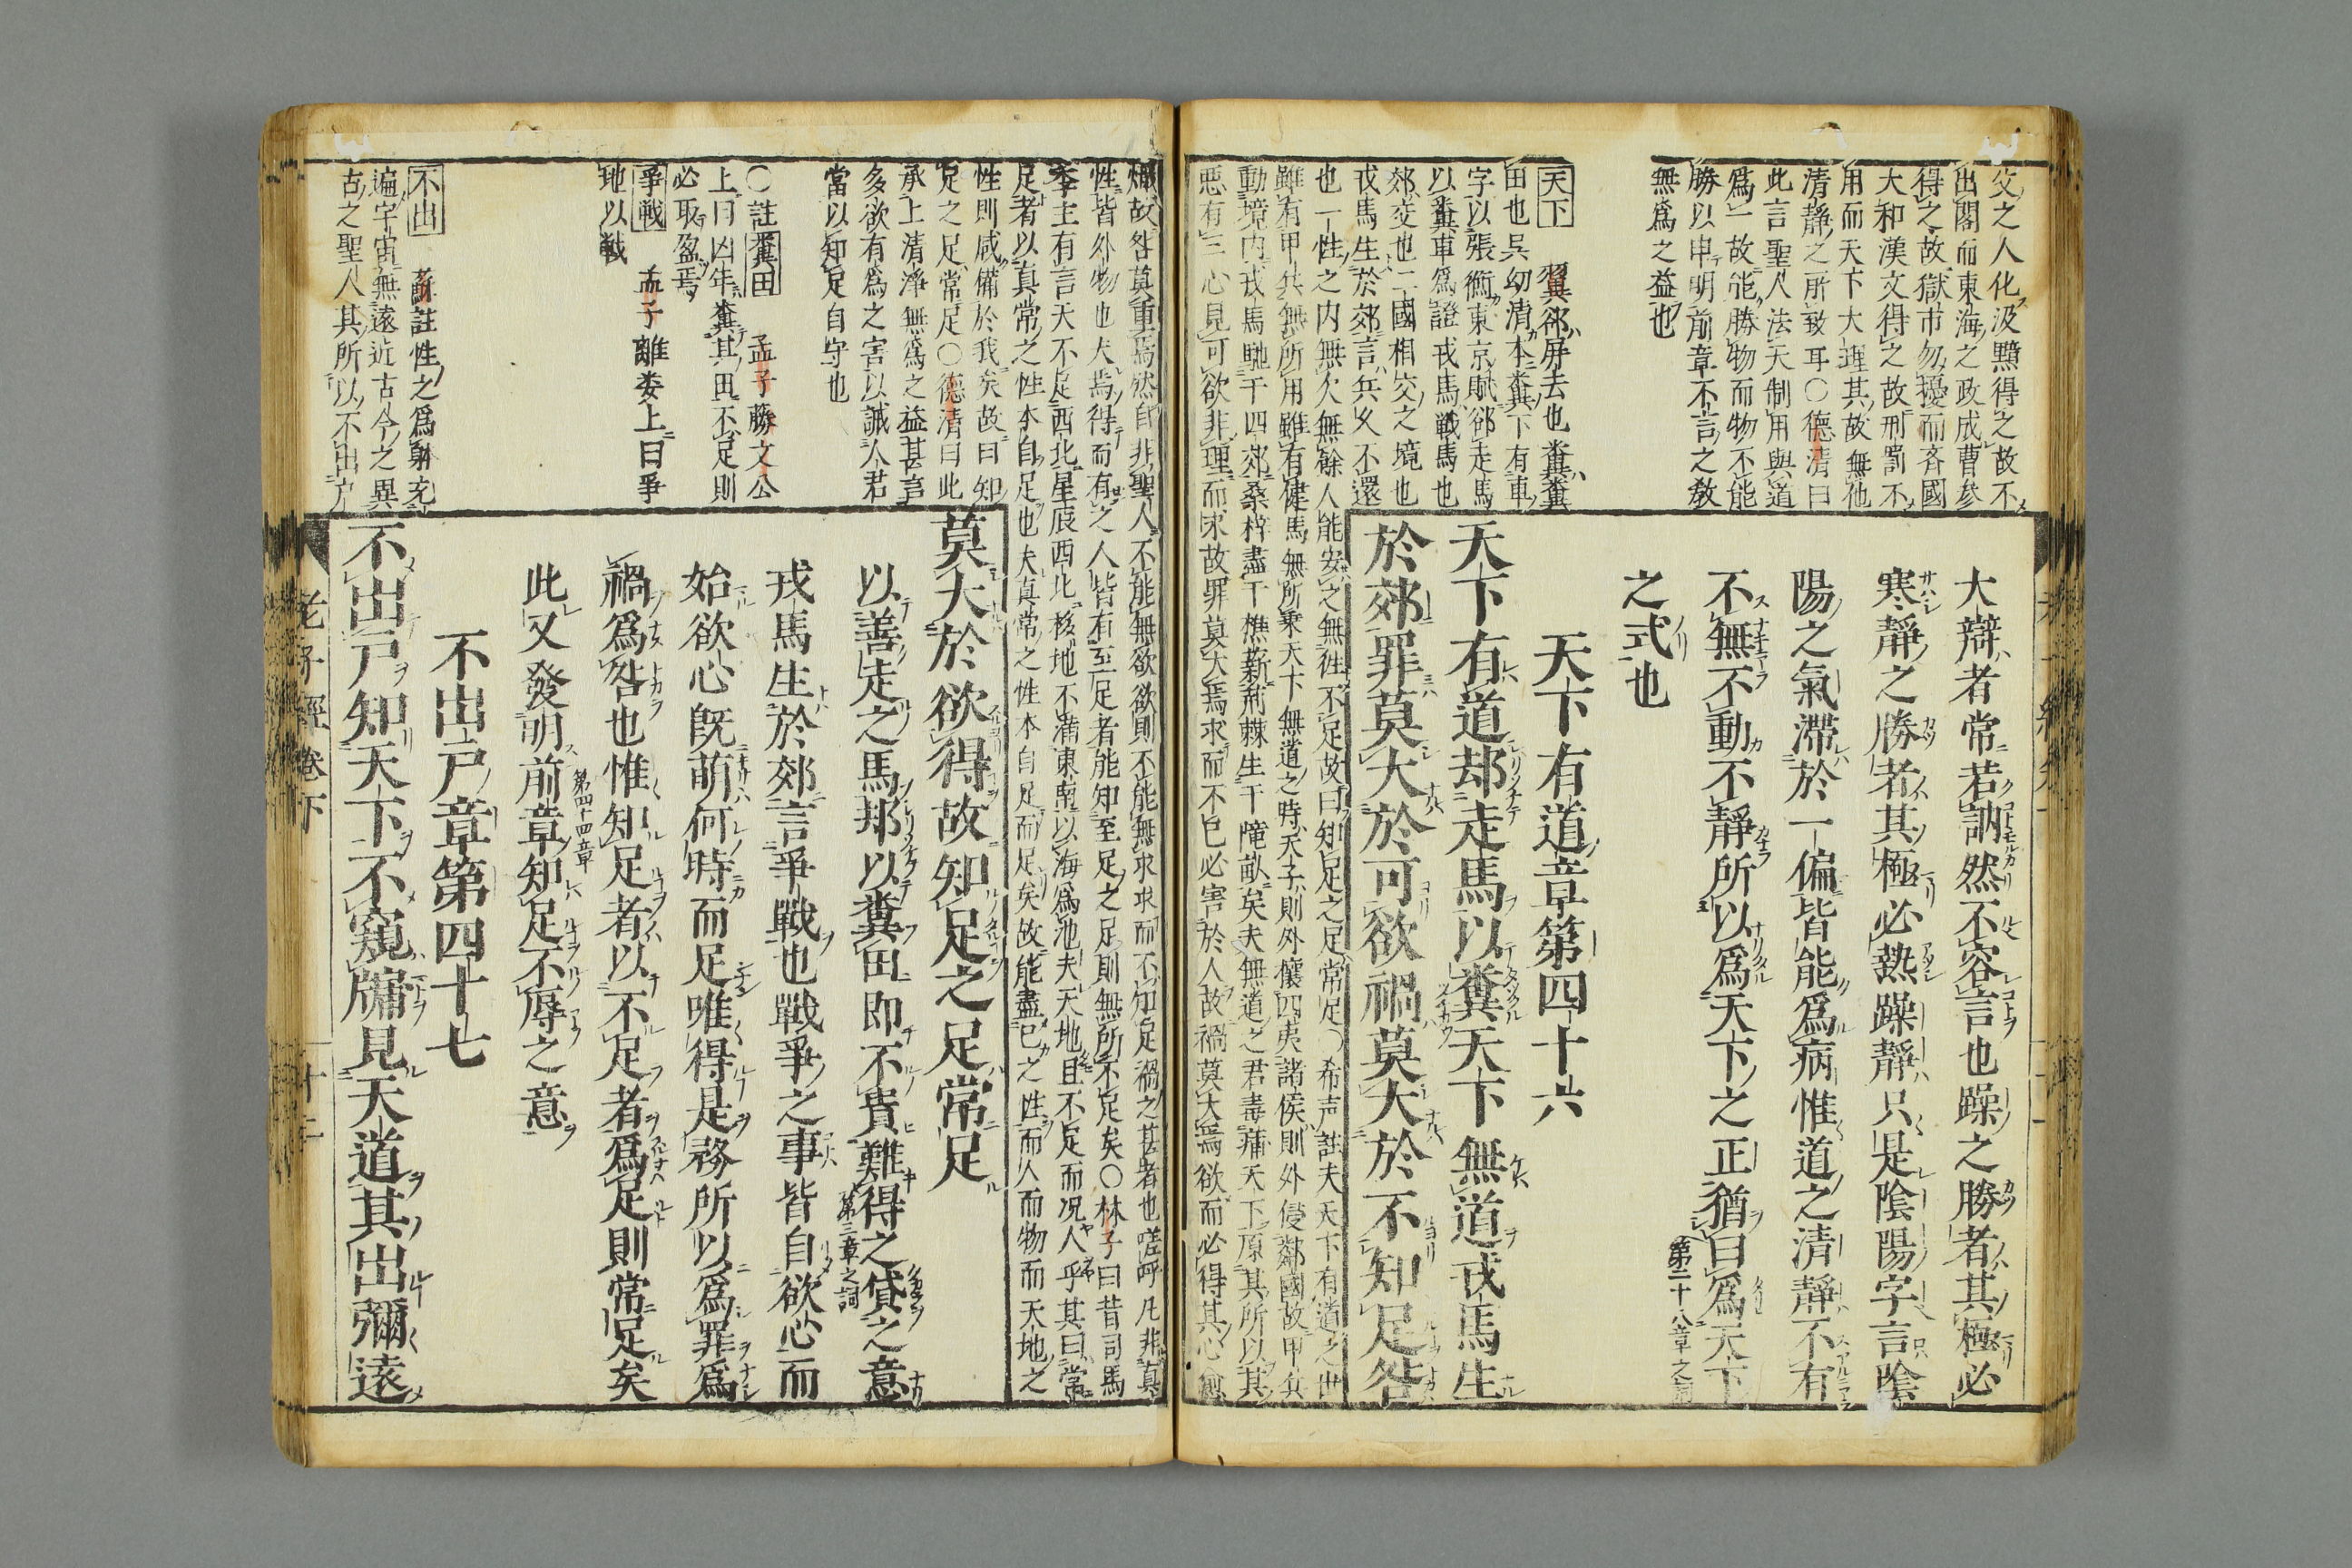 交之人化汲黯得之故不
出閣而東海之政成曹參
得之故獄市勿擾而齊國
大和漢文得之故刑罰不
用而天下大理其故無他
清靜之所致耳〇德清曰
此言聖人法天制用與道
爲一故能勝物而物不能
勝以申明前章不言之教
無爲之益也
大辯者常若訥然不容言也躁之勝者其極必
寒靜之勝者其極必熱躁靜只是陰陽字言陰
陽之氣滯於一偏皆能爲病惟道之清靜不有
不無不動不靜所以爲天下之正猶曰爲天下
第二十八章之詞
之式也
天下有道章第四十六
天下有道却走馬以糞天下無道戎馬生
於郊罪莫大於可欲禍莫大於不知足咎
天下 翼郤屏去也糞糞
田也吳幼清本糞下有車
字以張衡東京賦郤走馬
以糞車爲證戎馬戰馬也
郊交也二國相交之境也
戎馬生於郊言兵久不還
也一性之内無欠無餘人能安之無往不足故曰知足之足常足〇希声註夫天下有道之世
雖有甲兵無所用雖有健馬無所乘天下無道之時天子則外攘四夷諸侯則外侵鄰國故甲兵
動境内戎馬馳于四郊桑梓盡于樵薪荊棘生于隴畝矣夫無道之君毒痡天下原其所以其
惡有三心見可欲非理而求故罪莫大焉求而不已必害於人故禍莫大焉欲而必得其心愈
熾故咎莫重焉然自非聖人不能無欲欲則不能無求求而不知足禍之甚者也嗟呼凡非真
性皆外物也夫焉得而有之人皆有至足者能知至足之足則無所不足矣〇林子曰昔司馬
季主有言天不足西北星辰西北移地不滿東南以海爲池夫天地且不足而况人乎其曰常
足者以真常之性本自足也夫真常之性本自足而足矣故能盡己之性而人而物而天地之
性則咸備於我矣故曰知
足之足常足〇德清曰此
承上清淨無爲之益甚言
多欲有爲之害以誡人君
當以知足自守也
〇註糞田 孟子藤文公
上曰凶年糞其田不足則
必取盈焉
爭戰 孟子離婁上曰爭
地以戰
莫大於欲得故知足之足常足
以善走之馬却以糞田即不貴難得之貨之意
第三章之詞
戎馬生於郊言爭戰也戰爭之事皆自欲心而
始欲心既萌何時而足唯得是務所以爲罪爲
禍爲咎也惟知足者以不足者爲足則常足矣
此又發明前章知足不辱之意
第四十四章
不出戶章第四十七
不出 蘇註性之爲躰充
遍宇宙無遠近古今之異
古之聖人其所以不出戶
不出戶知天下不窺牖見天道其出彌遠
老子經卷下
十二